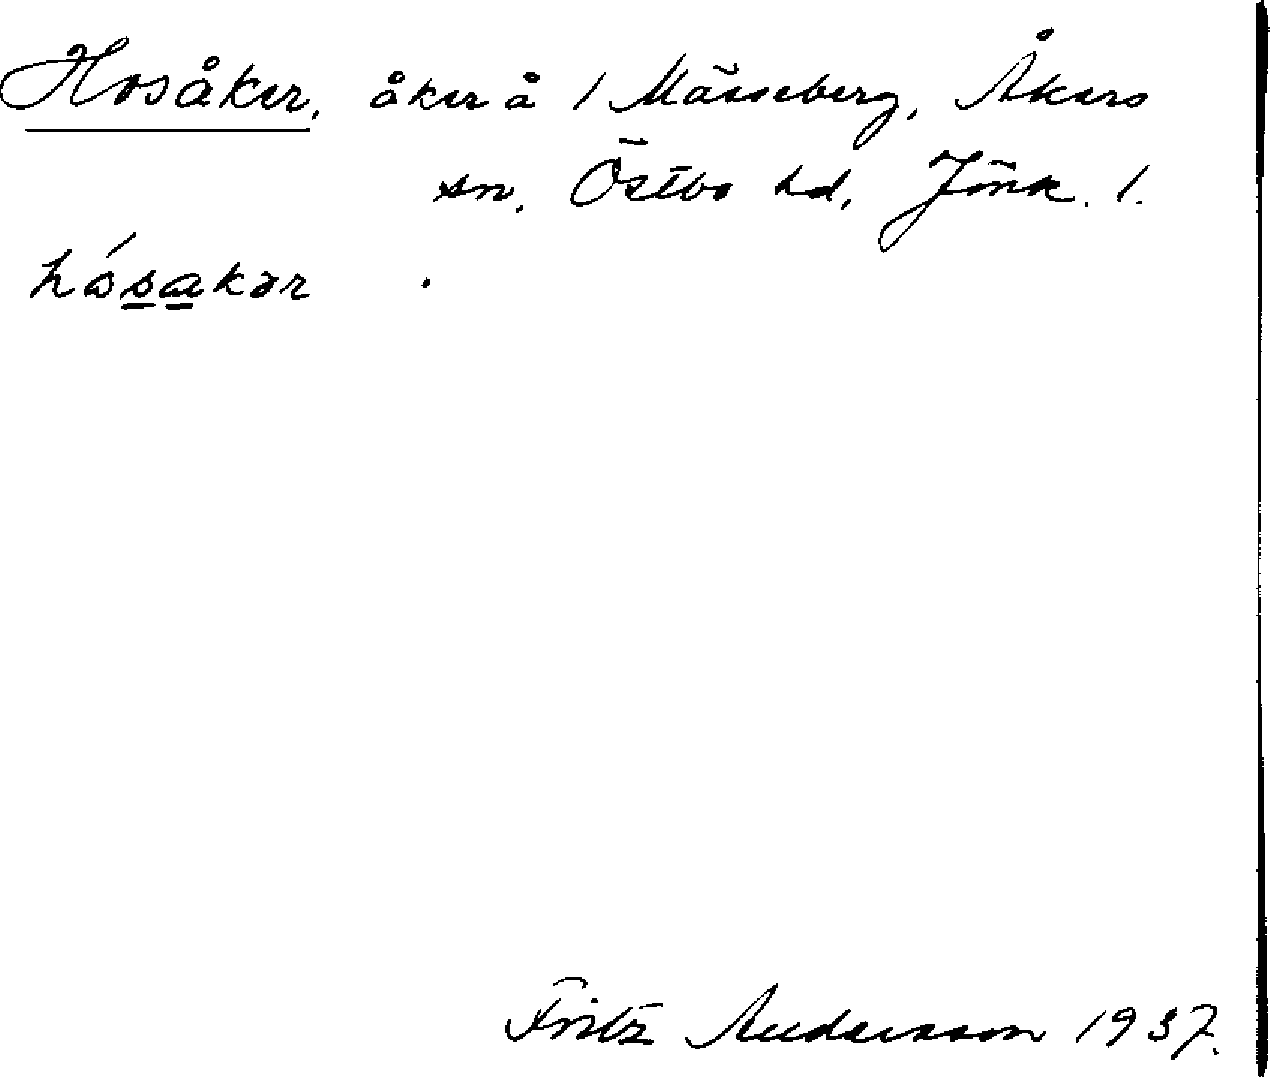 Hosåker, åker å 1 Mässeberg, Åkers
sn, Östbo hd, Jönk. l.
hósakər
Fritz Andersson 1937.